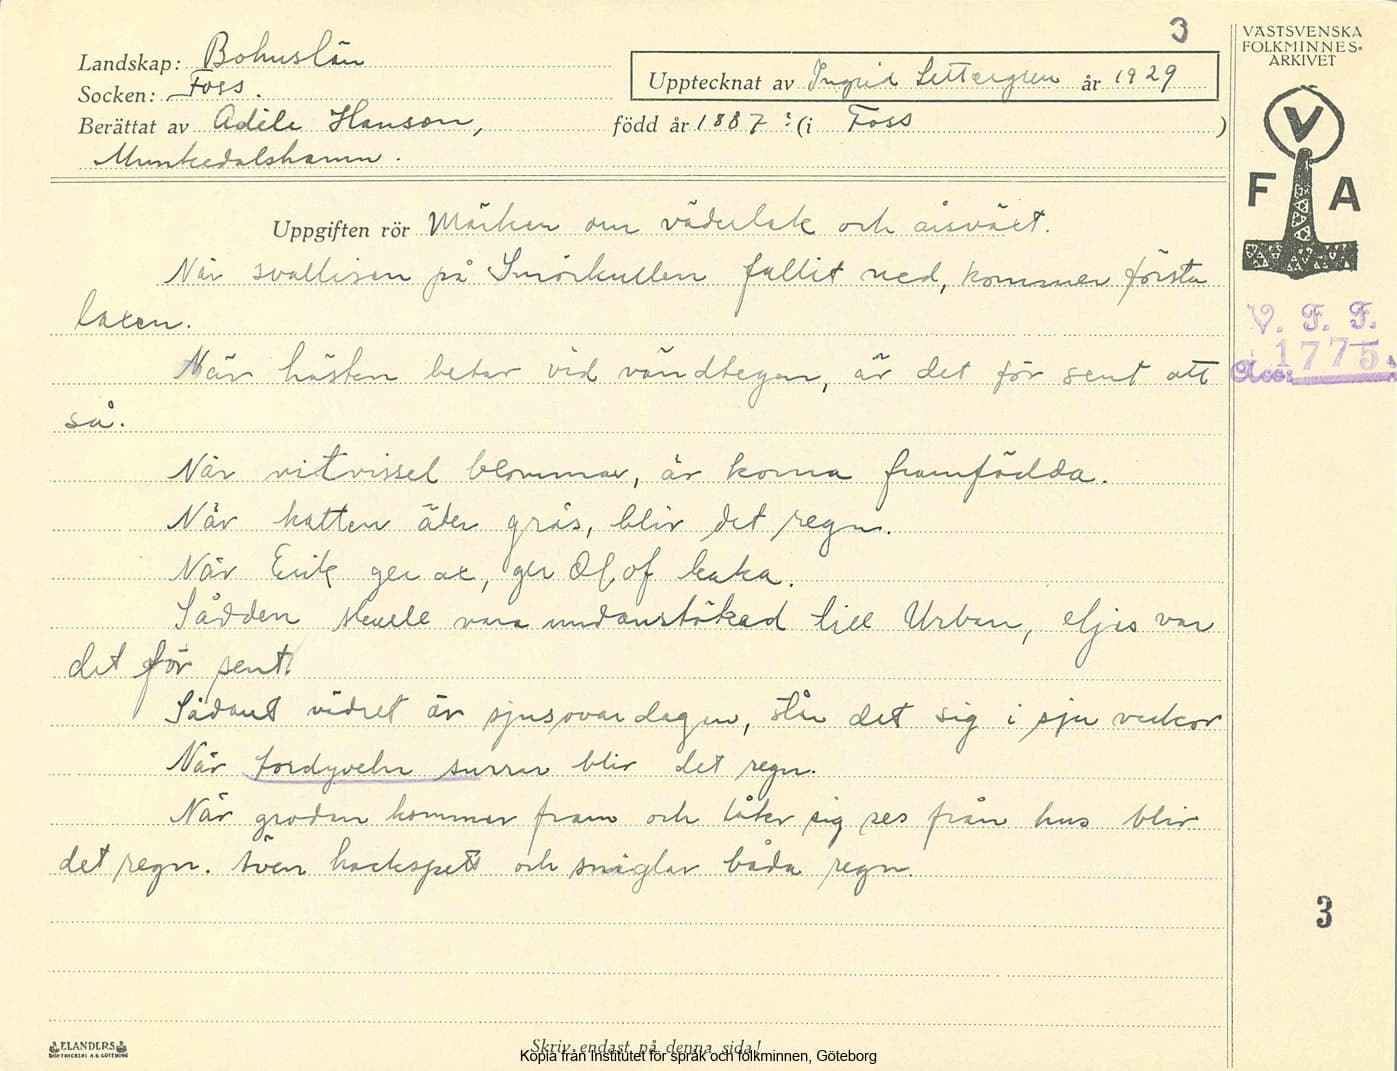 3
VÄSTSVENSKA
FOLKMINNES-
ARKIVET
Landskap: Bohuslän
Socken: Foss.
Upptecknat av Ingrid Settergren år 1929
Berättat av Adèle Hanson, född år 1887? (i Foss)
Munkedalshamn.
V
F A
Uppgiften rör Märken om väderlek och årsväxt.
När svallisen på Smörkullen fallit ned, kommer första
laxen.
V. F. F.
Acc: 1775.
När hästen betar vid vändtegen, är det för sent att
så.
När vitvissel blommar, är korna framfödda.
När katten äter gräs, blir det regn.
När Erik ger ax, ger Olof kaka.
Sådden skulle vara undanstökad till Urban, eljes var
det för sent.
Sådant vädret är sjusovardagen, står det sig i sju veckor
När tordyveln surrar blir det regn.
När grodan kommer fram och låter sig ses från hus blir
det regn. Även hackspett och sniglar båda regn.
3
ELANDERS
BOKTRYCKERI A.B. GÖTEBORG
Skriv endast på denna sida!
Kopia från Institutet för språk och folkminnen, Göteborg